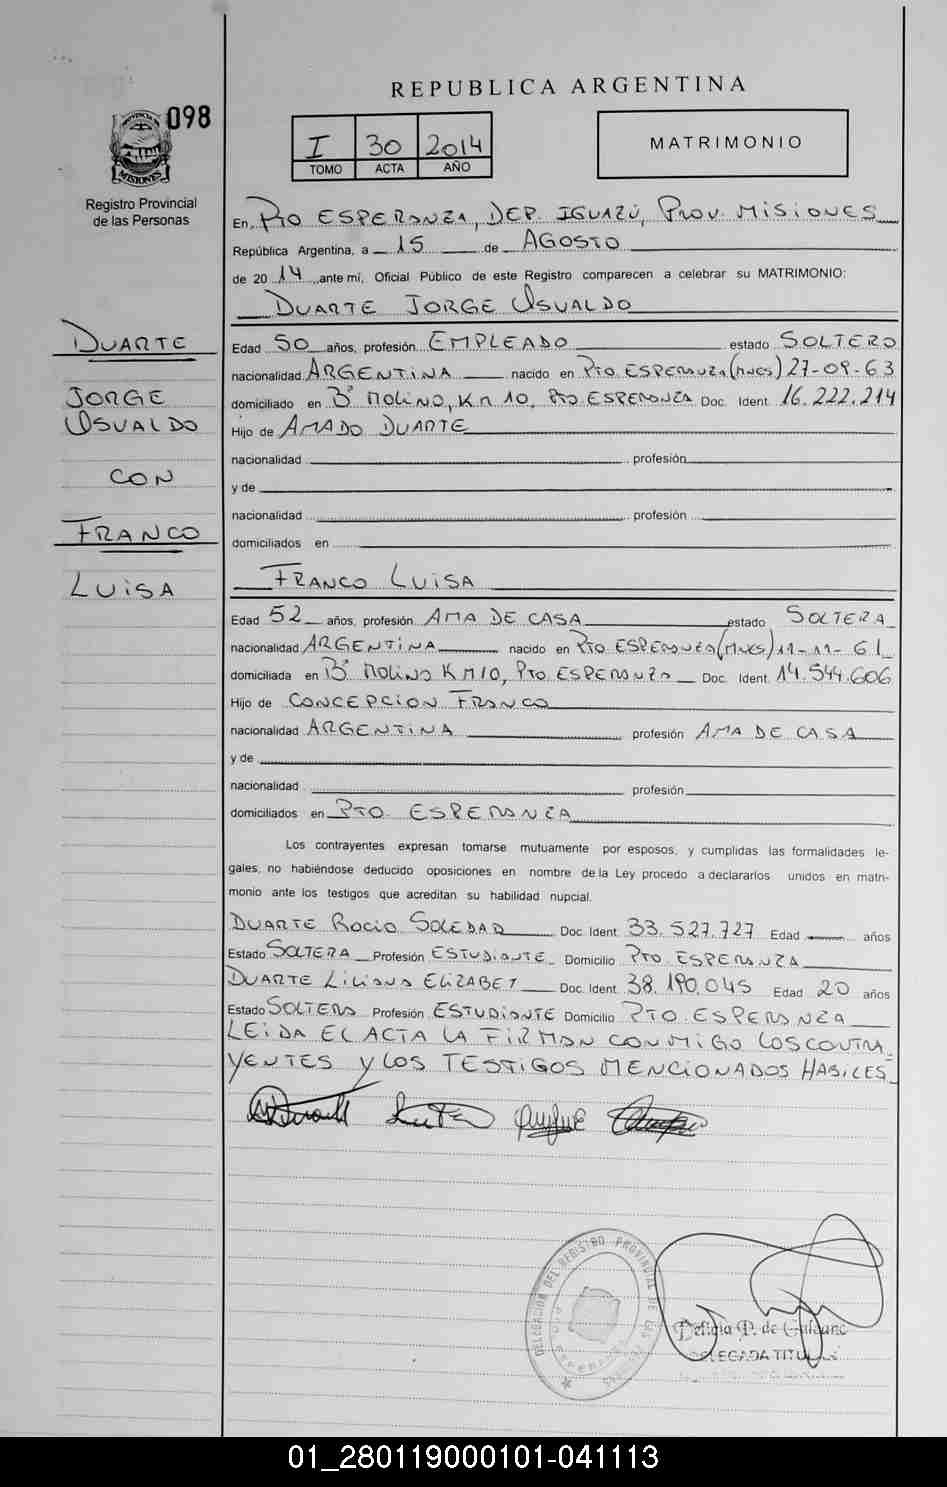 REPUBLICA ARGENTINA
098
PROVINCIA DE
MISIONES
Registro Provincial
de las Personas
I 30 2014
TOMO ACTA AÑO
MATRIMONIO
En, Pto ESPERANZA, DEP. IGUAZÚ, PROV. MISIONES
República Argentina, a 15 de AGOSTO
de 2014, ante mí, Oficial Público de este Registro comparecen a celebrar su MATRIMONIO:
DUARTE JORGE OSVALDO
DUARTE
JORGE
OSVALDO
CON
FRANCO
LUISA
Edad 50 años, profesión EMPLEADO estado SOLTERO
nacionalidad ARGENTINA nacido en Pto ESPERANZA (MNES) 27-09-63
domiciliado en Bº MOLINO, KM 10, Pto ESPERANZA Doc. Ident. 16.222.214
Hijo de AMADO DUARTE
nacionalidad profesión
y de
nacionalidad profesión
domiciliados en
FRANCO LUISA
Edad 52 años, profesión AMA DE CASA estado SOLTERA
nacionalidad ARGENTINA nacido en Pto ESPERANZA (MNES) 11-11-61
domiciliada en Bº MOLINO KM10, Pto ESPERANZA Doc. Ident. 14.544.606
Hijo de CONCEPCION FRANCO
nacionalidad ARGENTINA profesión AMA DE CASA
y de
nacionalidad profesión
domiciliados en PTO. ESPERANZA
Los contrayentes expresan tomarse mutuamente por esposos, y cumplidas las formalidades le-
gales, no habiéndose deducido oposiciones en nombre de la Ley procedo a declararlos unidos en matri-
monio ante los testigos que acreditan su habilidad nupcial.
DUARTE ROCIO SOLEDAD Doc. Ident. 33.527.727 Edad años
Estado SOLTERA Profesión ESTUDIANTE Domicilio PTO. ESPERANZA
DUARTE LILIANA ELIZABET Doc. Ident. 38.190.045 Edad 20 años
Estado SOLTERA Profesión ESTUDIANTE Domicilio PTO. ESPERANZA
LEIDA EL ACTA LA FIRMAN CONMIGO LOS CONTRA
YENTES Y LOS TESTIGOS MENCIONADOS HABILES
DELEGACION DEL REGISTRO PROVINCIAL DE LAS PERSONAS
DELEGADA TITULAR
01_280119000101-041113